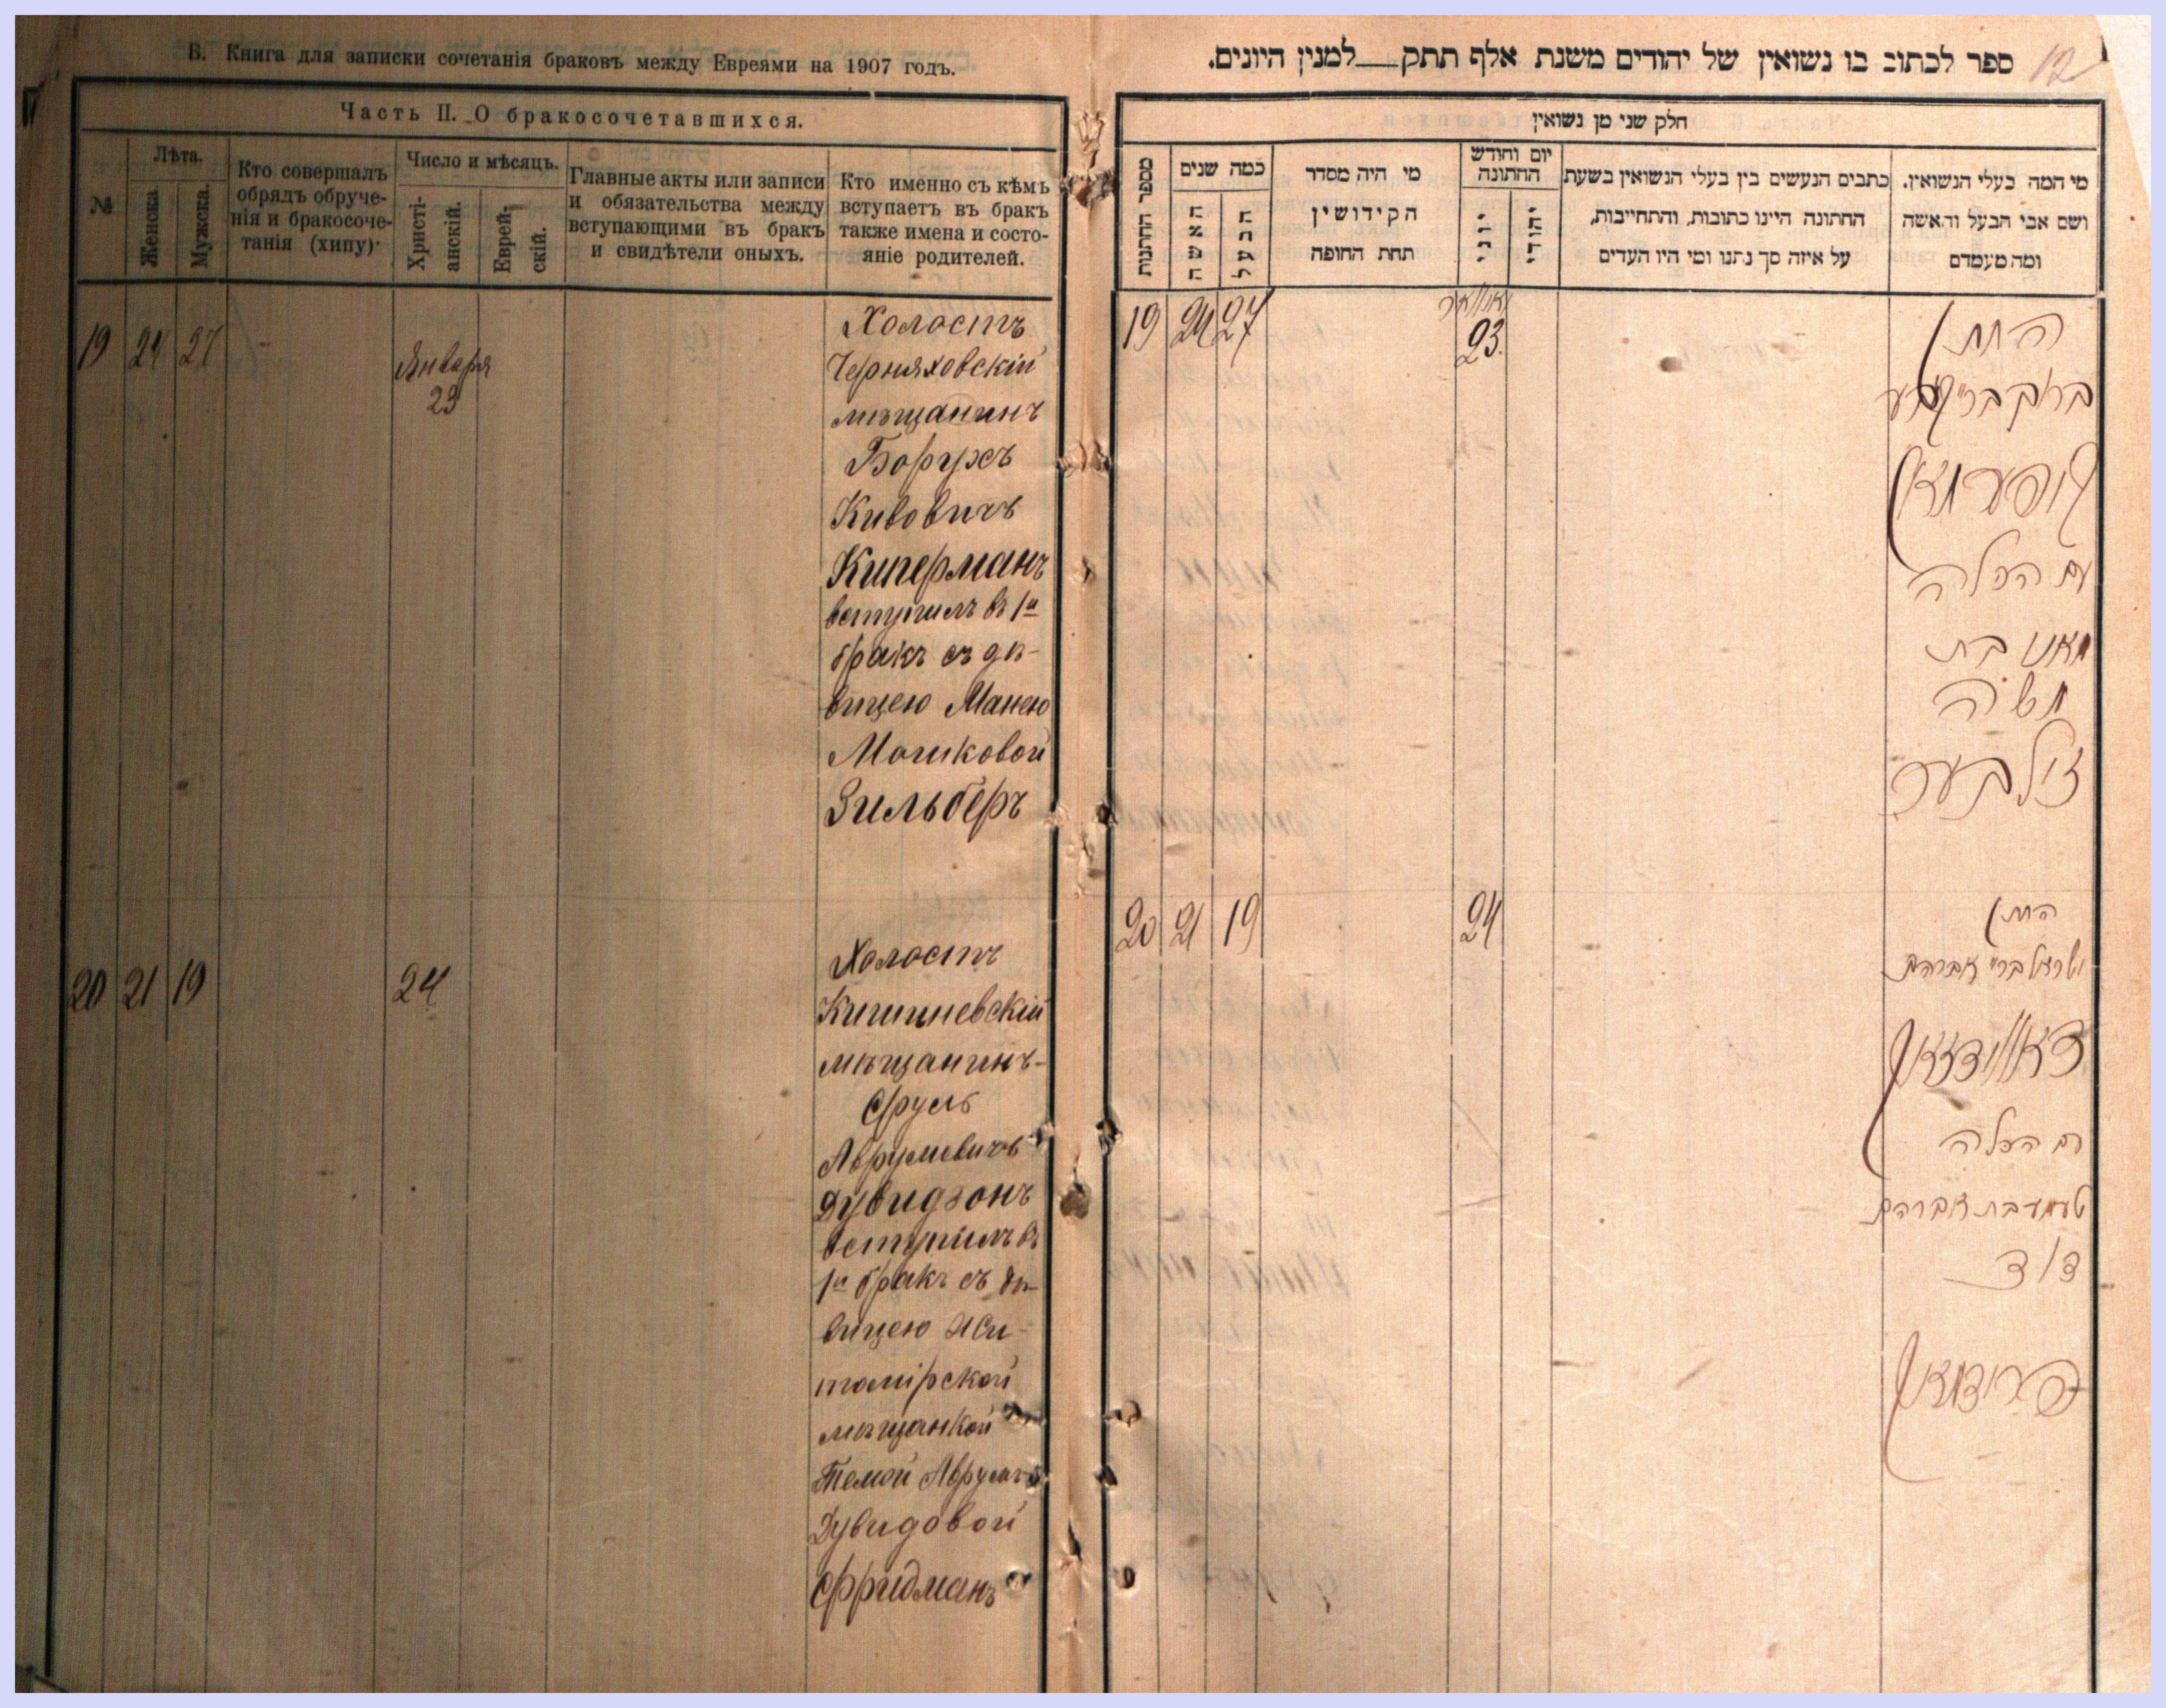 В. Книга для записки сочетанія браковъ между Евреями на 1907 годъ.
Часть II. О бракосочетавшихся.
№
Лѣта.
Женска
Мужска.
Кто совершалъ
обрядъ обруче-
нія и бракосоче-
танія (хипу)·
Число и мѣсяцъ.
Христі-
анскій.
Еврей-
скій.
Главные акты или записи
и обязательства между
вступающими въ бракъ
и свидѣтели оныхъ.
Кто именно съ кѣмъ
вступаетъ въ бракъ
также имена и состо-
яніе родителей.
19 24 27
Января
23
Холостъ
Черняховскій
мѣщанинъ
Борухъ
Кивовичъ
Киперманъ
вступилъ въ 1й
бракъ съ дѣ-
вицею Манею
Мошковой
Зильберъ
20 21 19
24
Холостъ
Кишиневскій
мѣщанинъ-
Сруль
Аврумовичъ
Дувидзонъ
вступилъ въ
1й бракъ съ дѣ-
вицею Жи-
томірской
мѣщанкой
Темой Аврумъ-
Дувидовой
Фридманъ
ספר לכתוב בו נשואין של יהודים משנת אלף תתק__למנין היונים.
12
חלק שני מן נשואין
מספר החתונות
כמה שנים
האשה
הבעל
מי היה מסדר
הקידושין
תחת החופה
יום וחודש
החתונה
יוני
יהודי
כתבים הנעשים בין בעלי הנשואין בשעת
החתונה היינו כתובות, והתחייבות,
על איזה סך נתנו ומי היו העדים
מי המה בעלי הנשואין.
ושם אבי הבעל והאשה
ומה מעמדם
19 24 27
יאנואר
23.
החתן
ברוך בר עקיבא
קופערמאן
עם הכלה
מאני בת
משה
זילבער
20 21 19
24
החתן
ישראל ברי אברהם
דאווידזאן
עם הכלה
טעמע בת אברהם
דוד
פרידמאן